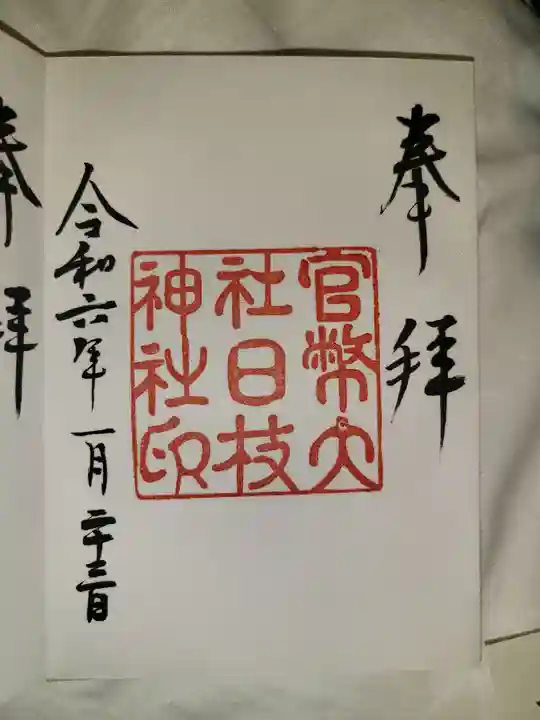 奉拝
官幣大
社日枝
神社印
令和六年一月二十三日
奉拝